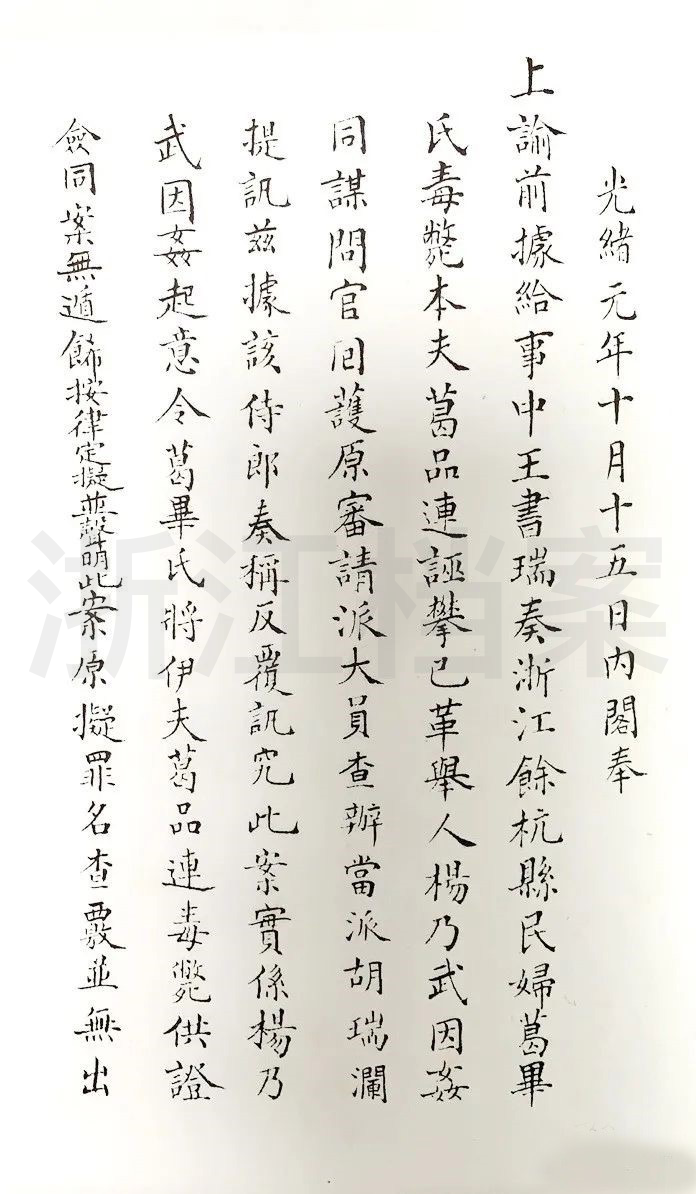 光緒元年十月十五日內閣奉
上諭前據給事中王書瑞奏浙江餘杭縣民婦葛畢
氏毒斃本夫葛品連誣攀已革舉人楊乃武因姦
同謀問官回護原審請派大員查辦當派胡瑞瀾
提訊茲據該侍郎奏稱反覆訊究此案實係楊乃
武因姦起意令葛畢氏將伊夫葛品連毒斃供證
僉同案無遁飾按律定擬並聲明此案原擬罪名查覈並無出
浙江档案